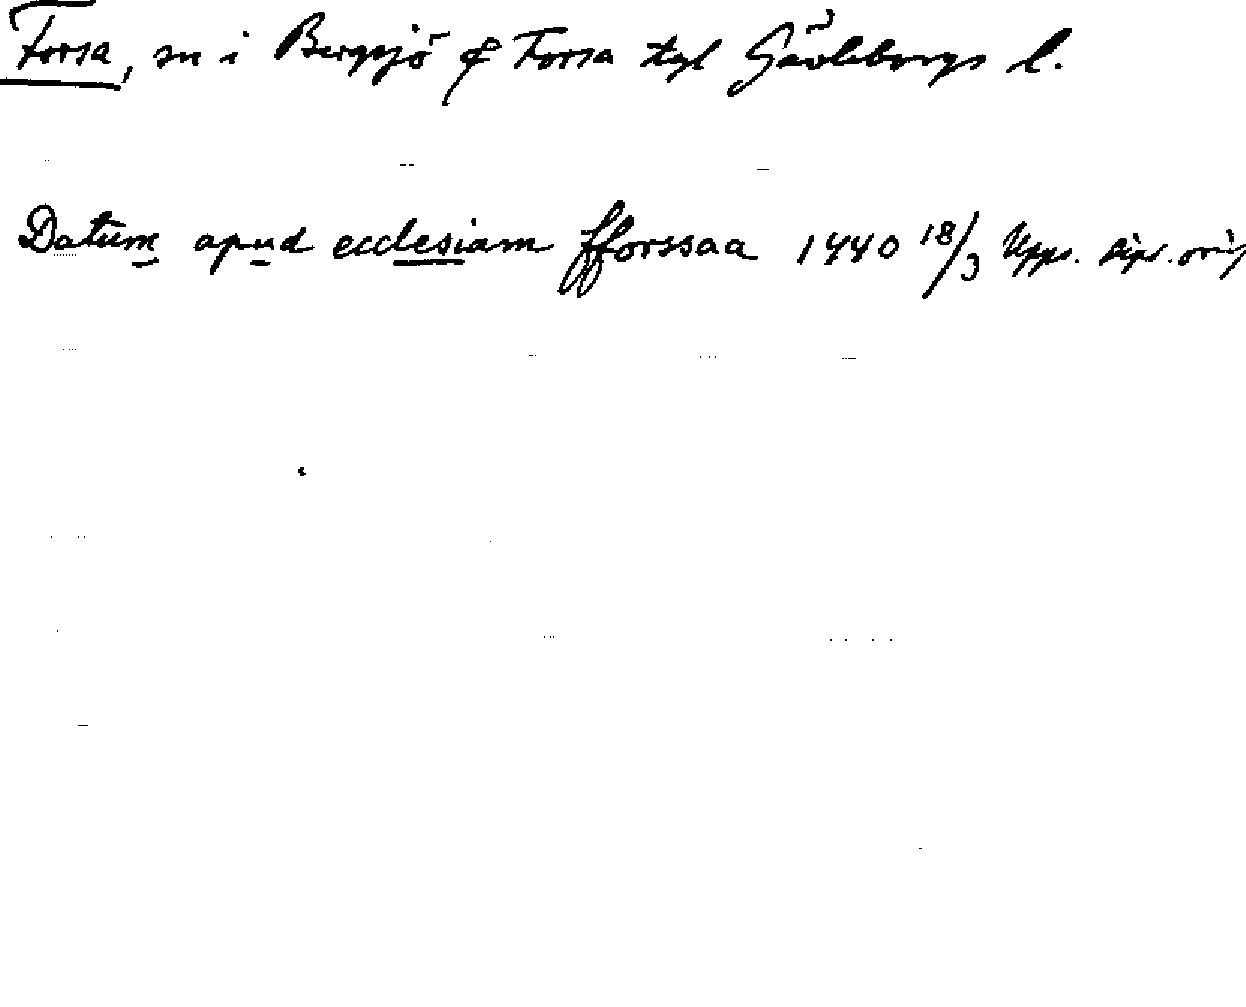 Forsa, sn i Bergsjö & Forsa tgl Gävleborgs l.
Datum apud ecclesiam fforssaa 1440 18/3 Upps. dipl. orig